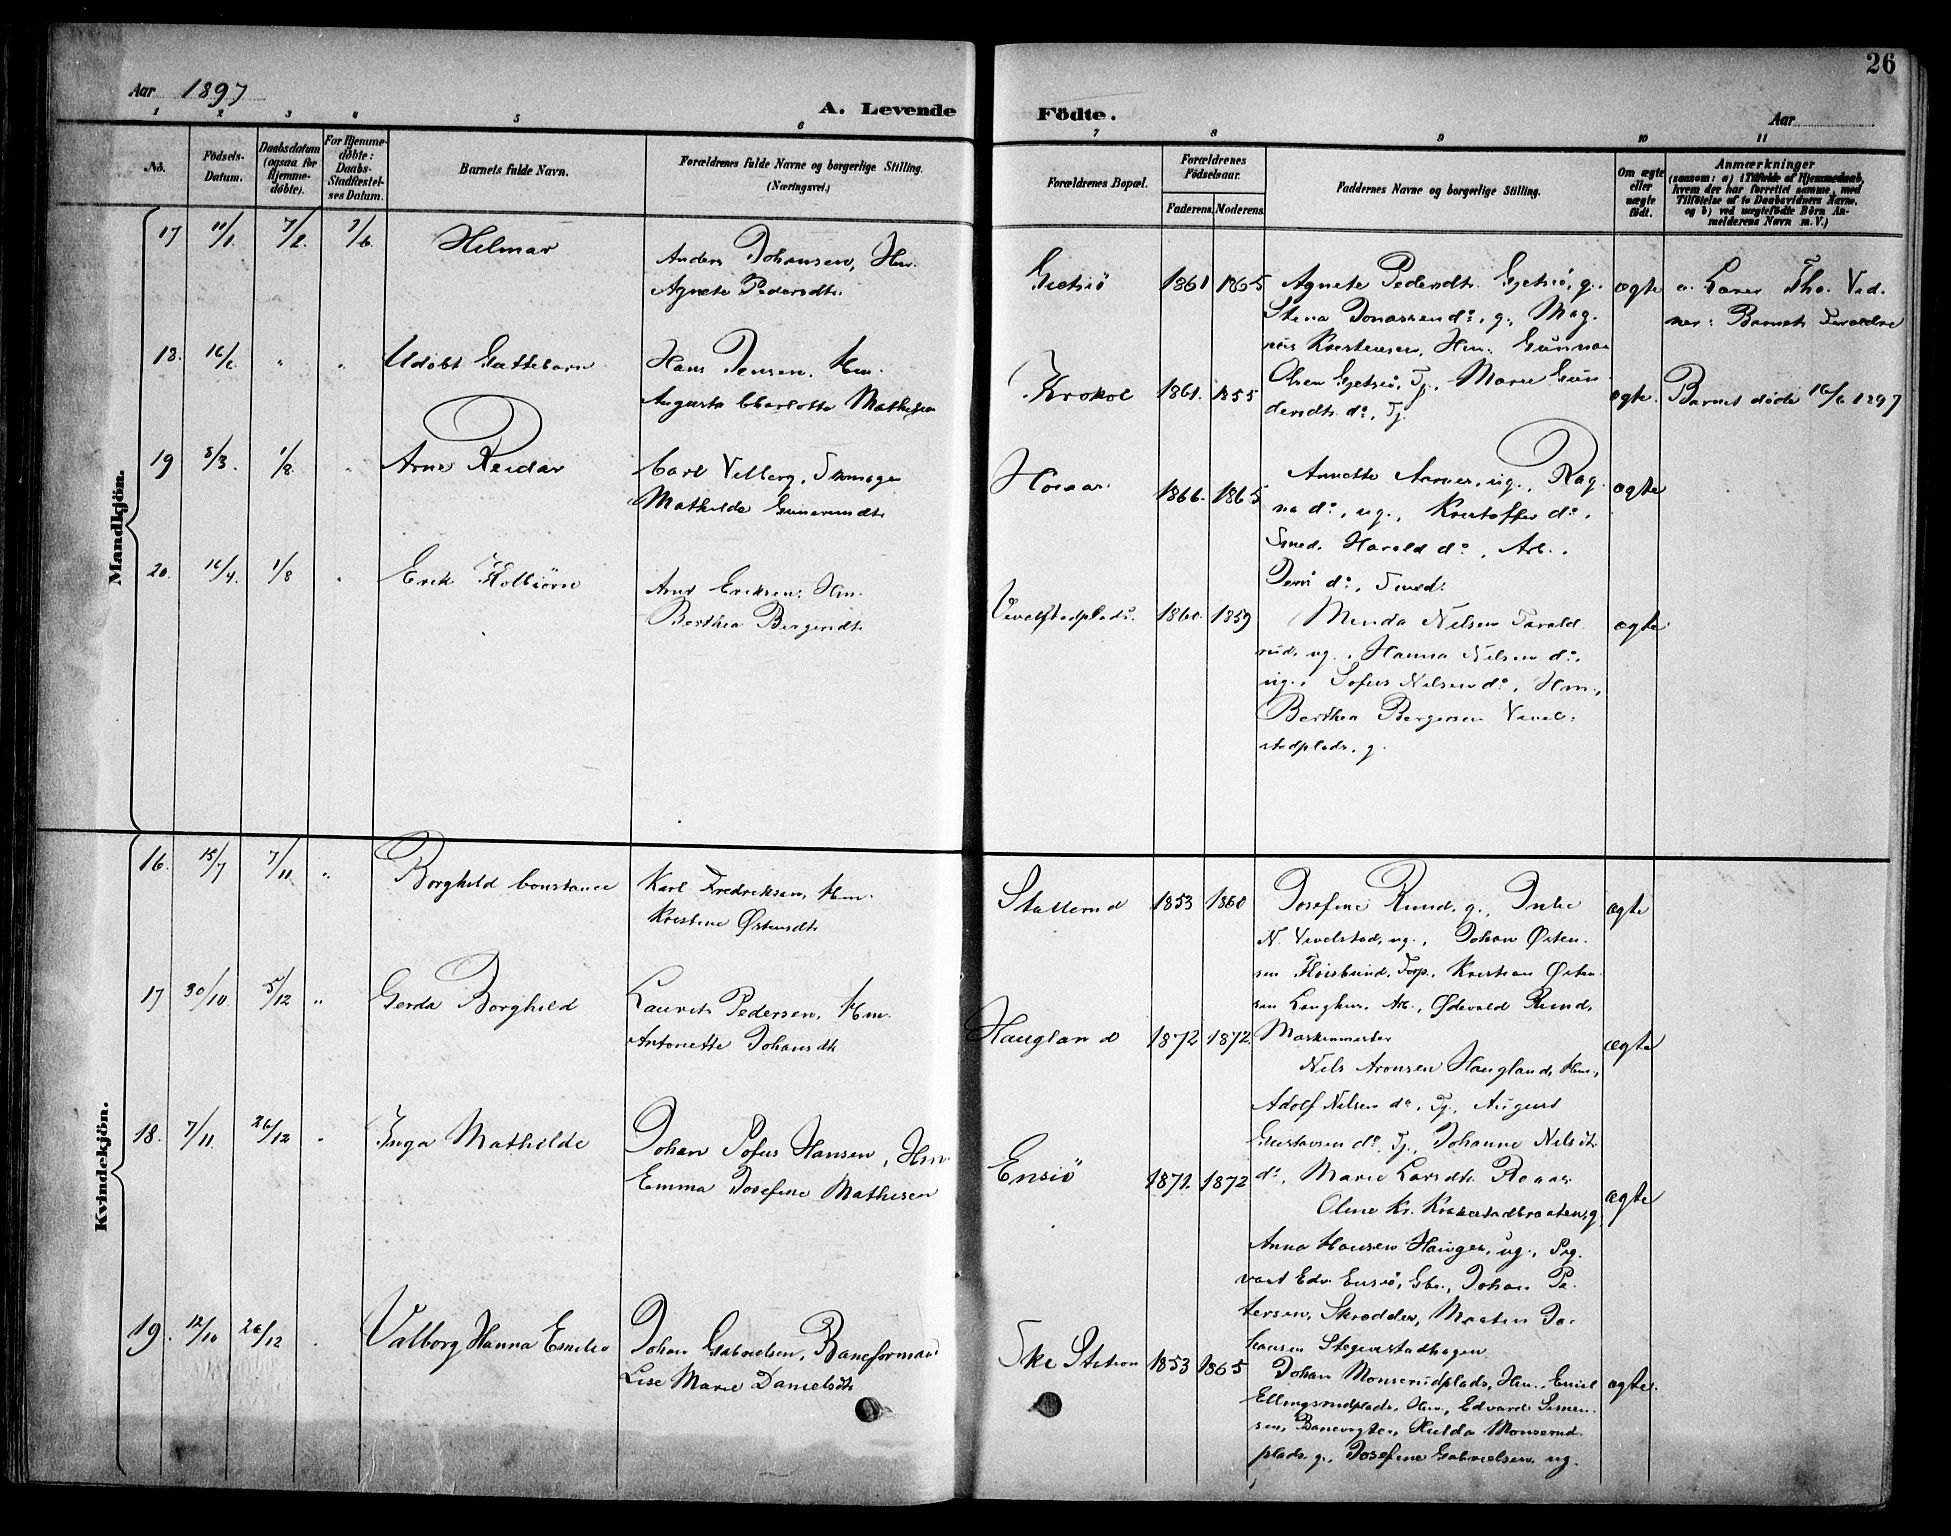 26
Aar 1897
A. Levende
Födte.
Aar
1 2 3 4 5 6 7 8 9 10 11
No.
Födsels-
Datum.
Daabsdatum
(ogsaa for
Hjemme-
döbte).
For Hjemme-
döbte:
Daabs-
Stadfæstel-
ses Datum.
Barnets fulde Navn.
Forældrenes fulde Navne og borgerlige Stilling.
(Næringsvei.)
Forældrenes Bopæl.
Forældrenes
Födselsaar.
Faderens.
Moderens.
Faddernes Navne og borgerlige Stilling.
Om ægte
eller
uægte
födt.
Anmærkninger
(saasom: a) i Tilfælde af Hjemmedaab,
hvem der har forrettet samme, med
Tilföielse af to Daabsvidners Navne.
og b) ved uægtefödte Börn An-
melderens Navn m. V.)
Mandkjön.
17 11/1. 7/2. 7/6 Hilmar
Anders Johansen, Hm.
Agnete Pedersdtr.
Gjetsiö 1861 1865
Agnete Pedersdtr. Gjetsiö, g.
Stina Jonassen do, g., Mag-
nus Kristensen, Hm., Gunnar
Olsen Gjetsiö, Tj., Marie Gun
dersdtr. do, Tj.
ægte
a. Lærer Tho. Vid-
ner: Barnets Forældre
18. 16/6 " " Udöbt Guttebarn
Hans Jensen. Hm.
Augusta Charlotte Mathisen
Krokol 1861. 1855
ægte. Barnet döde 16/6 1897
19 8/3. 1/8. " Arne Reidar
Carl Velberg, Skomager
Mathilde Gunerundtr.
1866. 1865
Annette Aamer, ug., Rag-
na do, ug., Kristoffer do.
Smed, Harald do, Arb.,
do, Smed.
ægte
20. 16/4. 1/8 " Erik Kolbiörn
Arnt Eriksen, Hm.
Berthea Bergersdtr.
Vevelstadplads. 1860. 1859
Minda Nilsen Tarald
rud, ug., Hanna Nilsen do,
ug., Sofus Nilsen do, Hm.,
Berthea Bergersen Vevel-
stadplads, g.
ægte
Kvindekjön.
16. 15/7 7/11 " Borghild Constance
Karl Fredriksen, Hm.
Kristine Östensdtr.
Stallerud 1853 1860
Josefine Rund, g.,
N. Vevelstad, ug., Johan Östen-
sen Flöisbund, Kristian Östen-
sen Langhus, Arb., Ödevald Rund,
Maskinmester
ægte
17 30/10 5/12 " Gerda Borghild
Laurits Pedersen, Hm.
Antonette Johansdtr.
Haugland 1872 1872.
Nils Aronsen Haugland, Hm.,
Adolf Nilsen do, Tj., August
Gustavsen do, Tj., Johanne Nilsdtr.
do, Marie Larsdtr. Roaas
ægte
18. 7/11. 26/12 " Inga Mathilde
Johan Sofus Hansen, Hm.
Emma Josefine Mathisen
Ensiö 1871. 1872
Oline Kr. Krakestadbraaten, g.
Anna Hansen Hauger, ug., Sig-
vart Edv. Ensiö, Gbr., Johan Pe-
tersen, Skrædder, Martin Jo-
hansen
ægte
19. 12/10 26/12 " Valborg Hanna Emilie
Johan Gabrielsen, Baneformand
Lise Marie Danielsdtr.
Ski Station 1853 1865
Johan Monserudplads, Hm., Emil
Ellingsrudplads, Hm., Edvard Simen-
sen, Banevogter, Hulda Monserud-
plads, g., Josefine Gabrielsen, ug.
ægte.